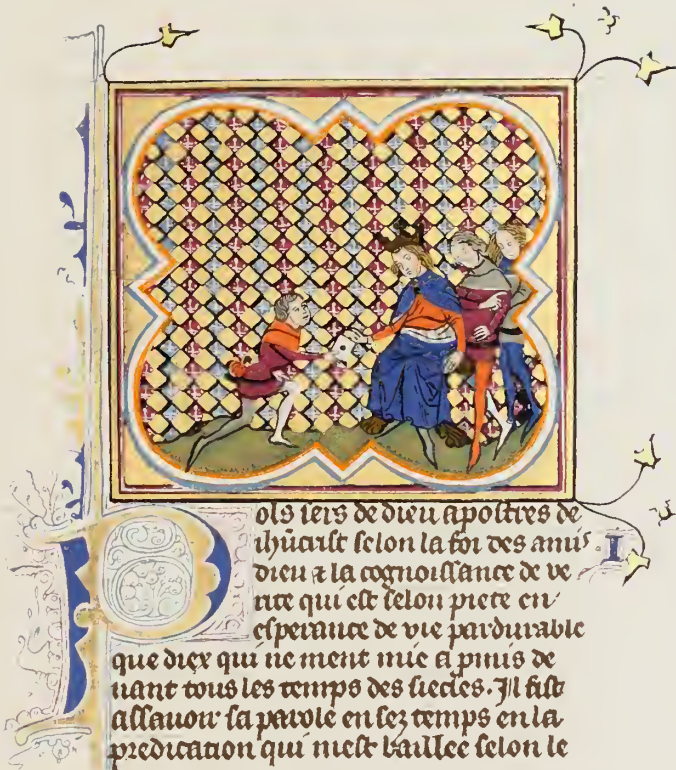 Pols sers de dieu apostres de
ihūcrist selon la foi des amis
dieu ⁊ la cognoissance de ve
rite qui est selon piete en
esperance de vie pardurable
que diex qui ne ment mie a pmis de
uant tous les temps des siecles. Il fist
assauoir sa parole en sez temps en la
predication qui mest baillee selon le
I